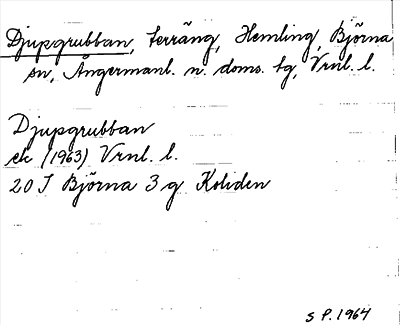 Djupgrubban, terräng, Hemling, Björna
sn, Ångermanl. n. doms. tg, Vrnl. l.
Djupgrubban
ek (1963) Vrnl. l.
20 J Björna 3 g Koliden
S P. 1964